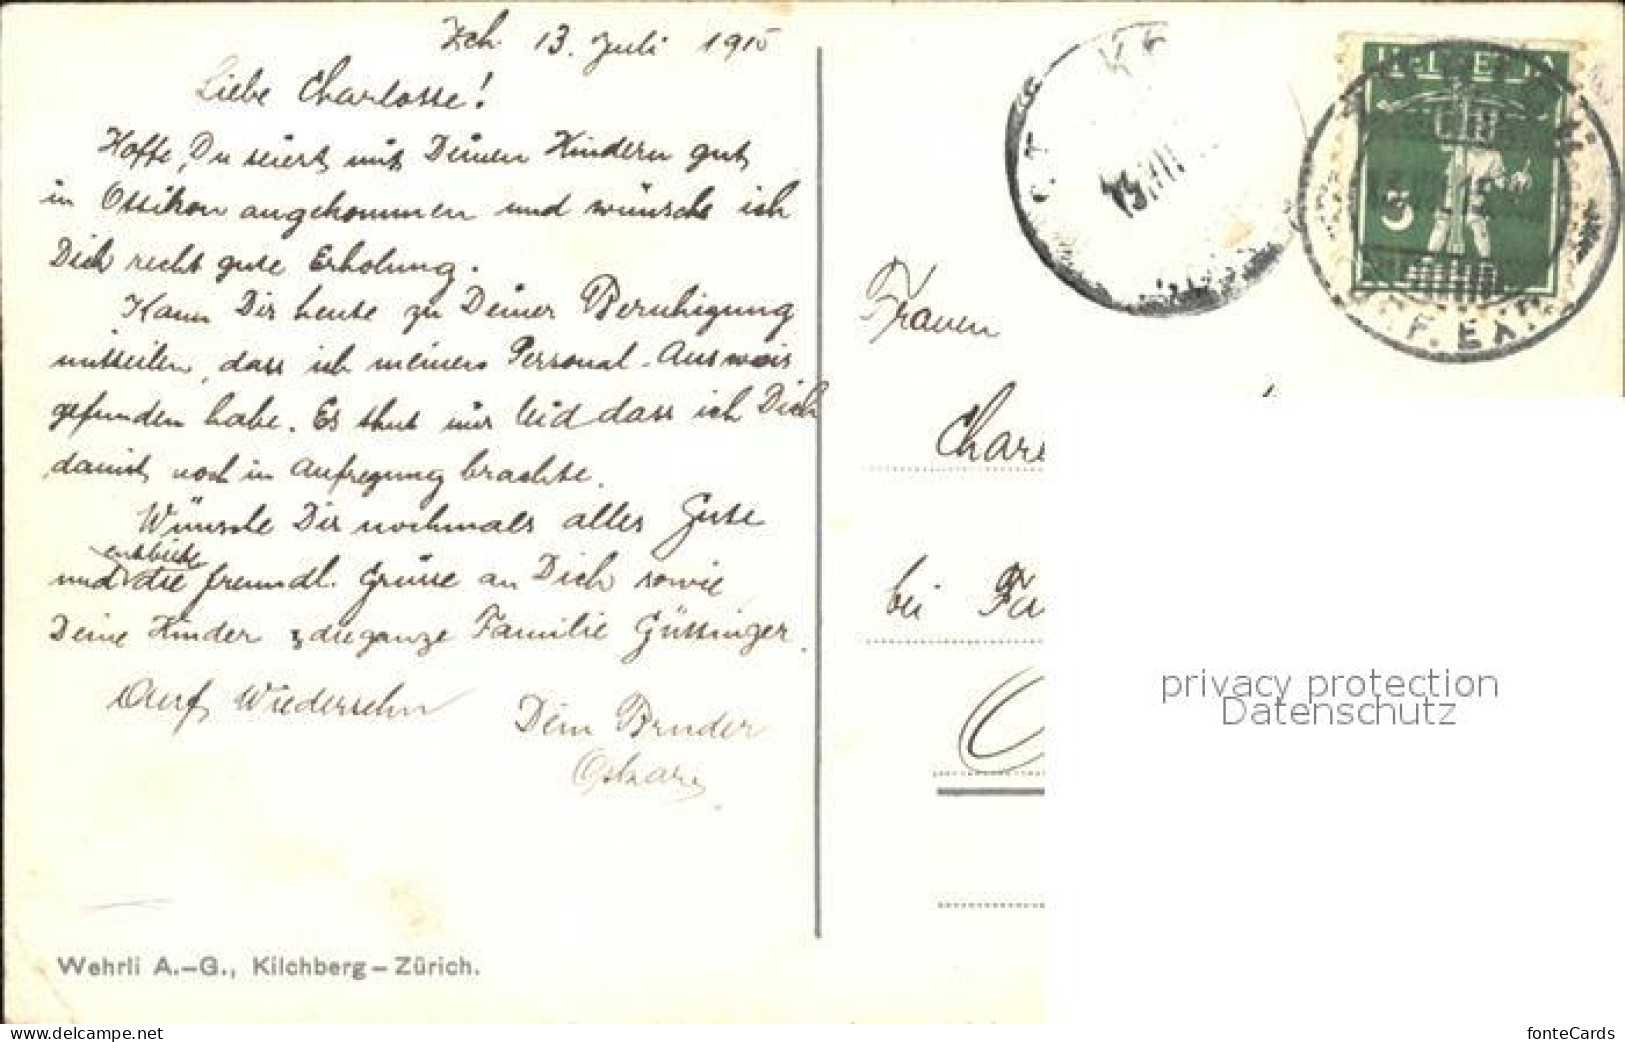 Zch. 13. Juli 1915
Liebe Charlotte!
Hoffe, Du seiest mit Deinen Kindern gut
in Ottikon angekommen und wünsche ich
Dich recht gute Erholung.
Kann Dir heute zu Deiner Beruhigung
mitteilen, dass ich meinen Personal-Ausweis
gefunden habe. Es thut mir leid dass ich Dich
damit noch in Aufregung brachte.
Wünsche Dir nochmals alles Gute
entbiete
und die freundl. Grüsse an Dich sowie
Deine Kinder & die ganze Familie Güttinger.
Auf Wiedersehn
Dein Bruder
Oskar
Wehrli A.-G., Kilchberg-Zürich.
HELVETIA
5
F. EX
Frauen
Char
bei Fa
privacy protection
Datenschutz
www.delcampe.net
fonteCards